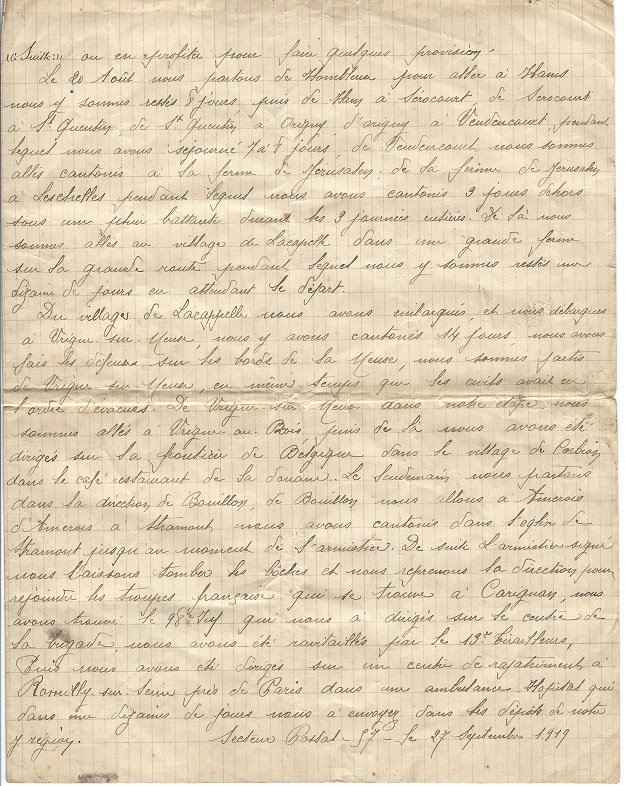 "Suite:" ou en profiter pour faire quelques provision.
Le 20 Août nous partons de Hombleux pour aller à Hams
nous y sommes restés 8 jours, puis de Ham à Sérocourt, de Serocourt
à St Quentin, de St Quentin à Origny, d'origny à Vendeucourt, pendant
lequel nous avons séjourné 7 à 8 jours, de Vendeucourt nous sommes
allés cantonis à la ferme de Jérusalem. de la ferme de Jerusalem
à Leschelles pendant lequel nous avons cantonis 3 jours dehors
sous un pluie battante durant les 3 journées entières. De là nous
sommes allés au village de Lacapelle dans une grande ferme
sur la grande route pendant lequel nous y sommes restés une
dizaine de jours en attendant le départ.
Du village de Lacappelle nous avons embarqués, et nous débarques
à Vrigne-sur-Meuse, nous y avons cantonés 14 jours, nous avons
fais les défenses sur les bords de la Meuse, nous sommes partis
de Vrigne-sur-Meuse, en même temps que les civils avait eu
l'ordre d'évacues. De Vrigne-sur-Meuse dans notre étape, nous
sommes allés à Vrigne-au-Bois, puis de là nous avons été
dirigés sur la frontière de Bélgique dans le village de Corbion
dans le café restaurant de la douane. Le lendemain nous partons
dans la direction de Bouillon, de Bouillon nous allons à Amerois
d'Amerois à Stramont nous avons cantonis dans l'église de
Stramont jusqu'au moment de l'armistice. De suite L'armistice signé
nous laissons tomber les bôches et nous reprenons la direction pour
rejoindre les troupes française qui se trouve à Carignan, nous
avons trouvé le 98e qui nous à dirigés sur le centre de
la brigade, nous avons été ravitaillés par le 13e Tirailleurs,
Puis nous avons été dirigés sur un centre de rapatriement à
Romilly-sur-Seine près de Paris dans une ambulance Hopital qui
dans une dizaine de jours nous à envoyez dans les dépôts de notre
région. Secteur Postal - 97 - le 27 Septembre 1919